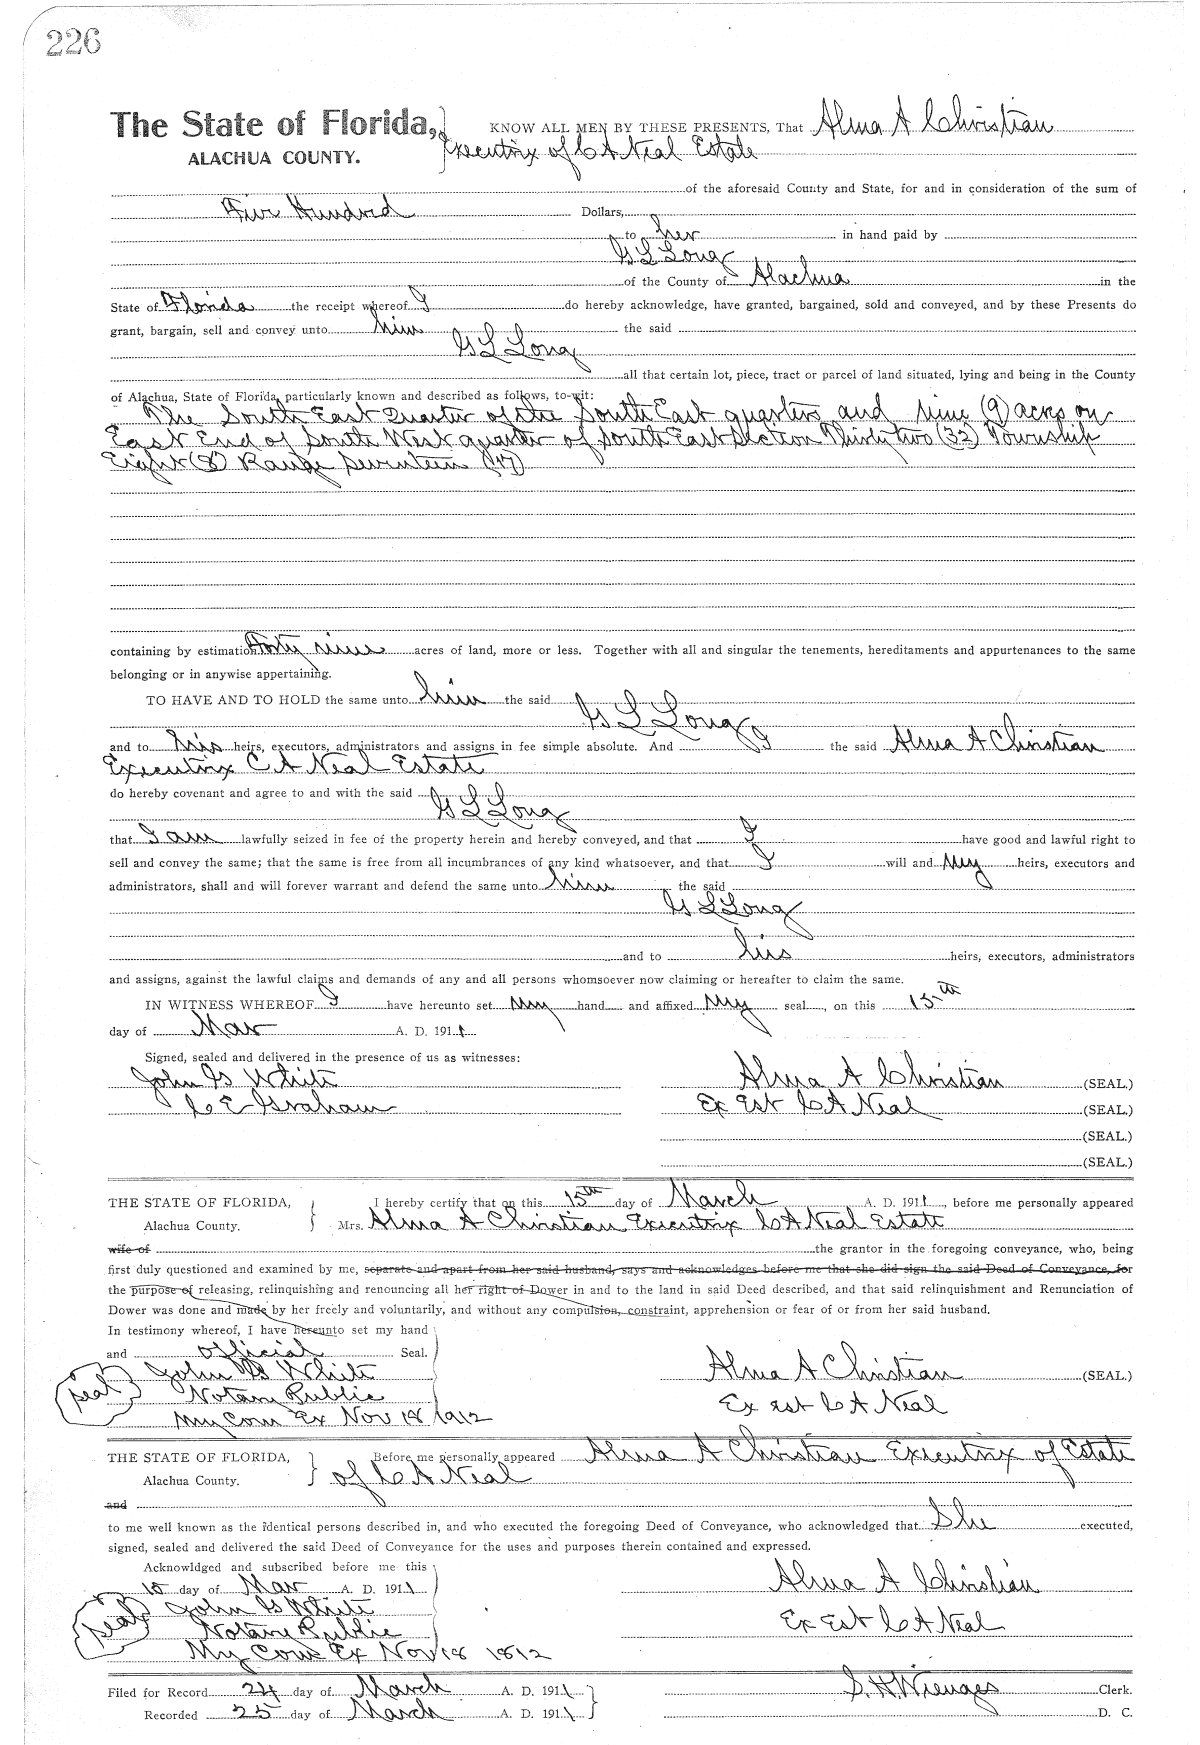 226
The State of Florida, KNOW ALL MEN BY THESE PRESENTS, That Alma A Christian
ALACHUA COUNTY. Executrix of C A Neal Estate
of the aforesaid County and State, for and in consideration of the sum of
Five Hundred Dollars,
to her in hand paid by
G L Long
of the County of Alachua in the
State of Florida the receipt whereof I do hereby acknowledge, have granted, bargained, sold and conveyed, and by these Presents do
grant, bargain, sell and convey unto him the said
G L Long
all that certain lot, piece, tract or parcel of land situated, lying and being in the County
of Alachua, State of Florida, particularly known and described as follows, to-wit:
The South East Quarter of the South East quarters and nine (9) acres on
East End of South West quarter of South East Section Thirty two (32) Township
Eight (8) Range Seventeen (17)
containing by estimation Forty nine acres of land, more or less. Together with all and singular the tenements, hereditaments and appurtenances to the same
belonging or in anywise appertaining.
TO HAVE AND TO HOLD the same unto him the said
G L Long
and to his heirs, executors, administrators and assigns in fee simple absolute. And I the said Alma A Christian
Executrix C A Neal Estate
do hereby covenant and agree to and with the said
G L Long
that I am lawfully seized in fee of the property herein and hereby conveyed, and that I have good and lawful right to
sell and convey the same; that the same is free from all incumbrances of any kind whatsoever, and that I will and my heirs, executors and
administrators, shall and will forever warrant and defend the same unto him the said
G L Long
and to his heirs, executors, administrators
and assigns, against the lawful claims and demands of any and all persons whomsoever now claiming or hereafter to claim the same.
IN WITNESS WHEREOF I have hereunto set my hand and affixed my seal, on this 15th
day of Mar A. D. 1911
Signed, sealed and delivered in the presence of us as witnesses:
John G White Alma A Christian (SEAL.)
C E Graham Ex Est C A Neal (SEAL.)
(SEAL.)
(SEAL.)
THE STATE OF FLORIDA, I hereby certify that on this 15th day of March A. D. 1911, before me personally appeared
Alachua County. Mrs. Alma A Christian Executrix C A Neal Estate
wife of the grantor in the foregoing conveyance, who, being
first duly questioned and examined by me, separate and apart from her said husband, says and acknowledges before me that she did sign the said Deed of Conveyance, for
the purpose of releasing, relinquishing and renouncing all her right of Dower in and to the land in said Deed described, and that said relinquishment and Renunciation of
Dower was done and made by her freely and voluntarily, and without any compulsion, constraint, apprehension or fear of or from her said husband.
In testimony whereof, I have hereunto set my hand
and official Seal.
John G White Alma A Christian (SEAL.)
seal Notary Public Ex est C A Neal
My Com Ex Nov 18 1912
THE STATE OF FLORIDA, Before me personally appeared Alma A Christian Executrix of Estate
Alachua County. of C A Neal
and
to me well known as the identical persons described in, and who executed the foregoing Deed of Conveyance, who acknowledged that She executed,
signed, sealed and delivered the said Deed of Conveyance for the uses and purposes therein contained and expressed.
Acknowldged and subscribed before me this
15 day of Mar A. D. 1911 Alma A Christian
John G White
seal Notary Public Ex Est C A Neal
My Com Ex Nov 18 1812
Filed for Record 24 day of March A. D. 1911 S. H. Wienges Clerk.
Recorded 25 day of March A. D. 1911 D. C.